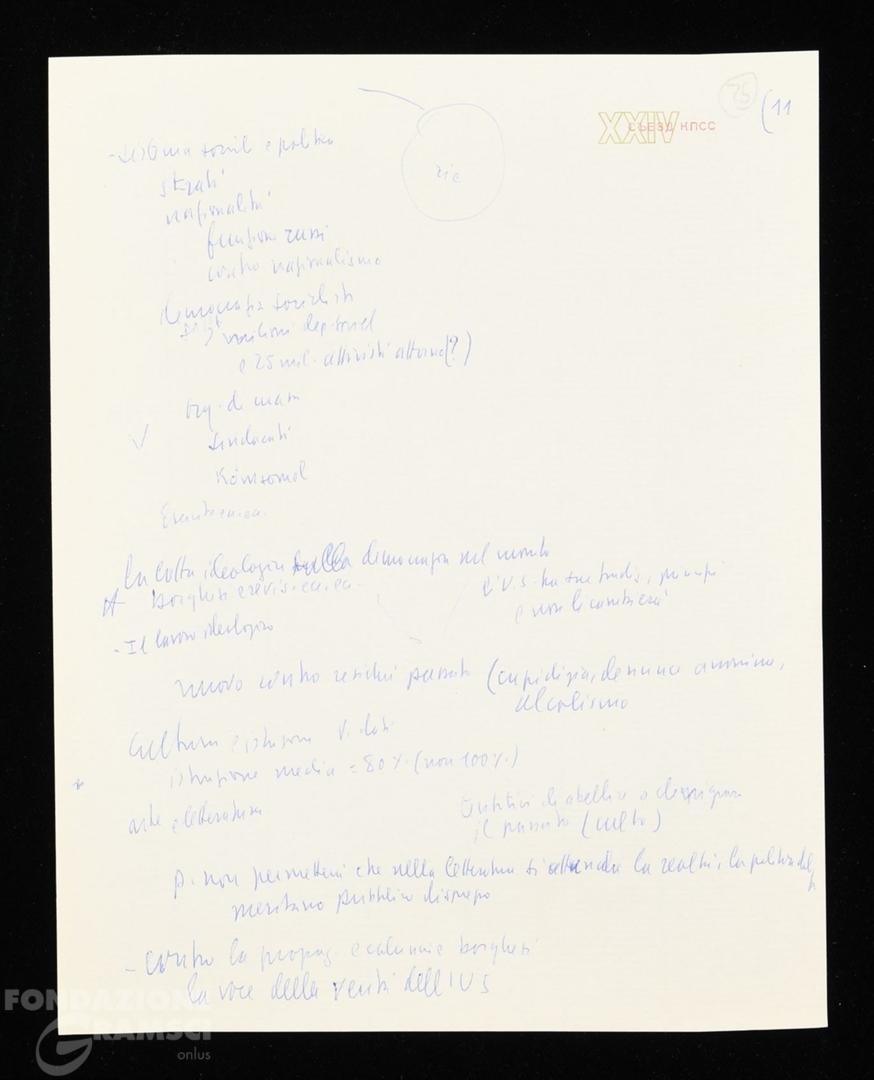 25
(11
XXIV СЪЕЗД КПСС
- Sistema sociale e politico
zie
strati
nazionalità
funzione russi
contro nazionalismo
democrazia socialista
milioni dep. soviet
e 25 mil. attivisti attorno (?)
org. di massa
V sindacati
Komsomol
la lotta ideologica democrazia nel mondo
borghesi e revis.
L'U.S. ha sue tradiz., principi
e non li cambierà
- Il lavoro ideologico
nuovo contro residui passato (cupidigia, denunce anonime,
alcolismo
Cultura e istruzione V. dati
istruzione media = 80% (non 100%)
arte e letteratura
Tentativi di abellire o denigrare
il passato (culto)
p. non permetterà che nella letteratura si la realtà, la politica del p
meritano pubblico disprezzo
- contro la propag. e calunnie borghesi
la voce della verità dell'US
FONDAZIONE
GRAMSCI
onlus